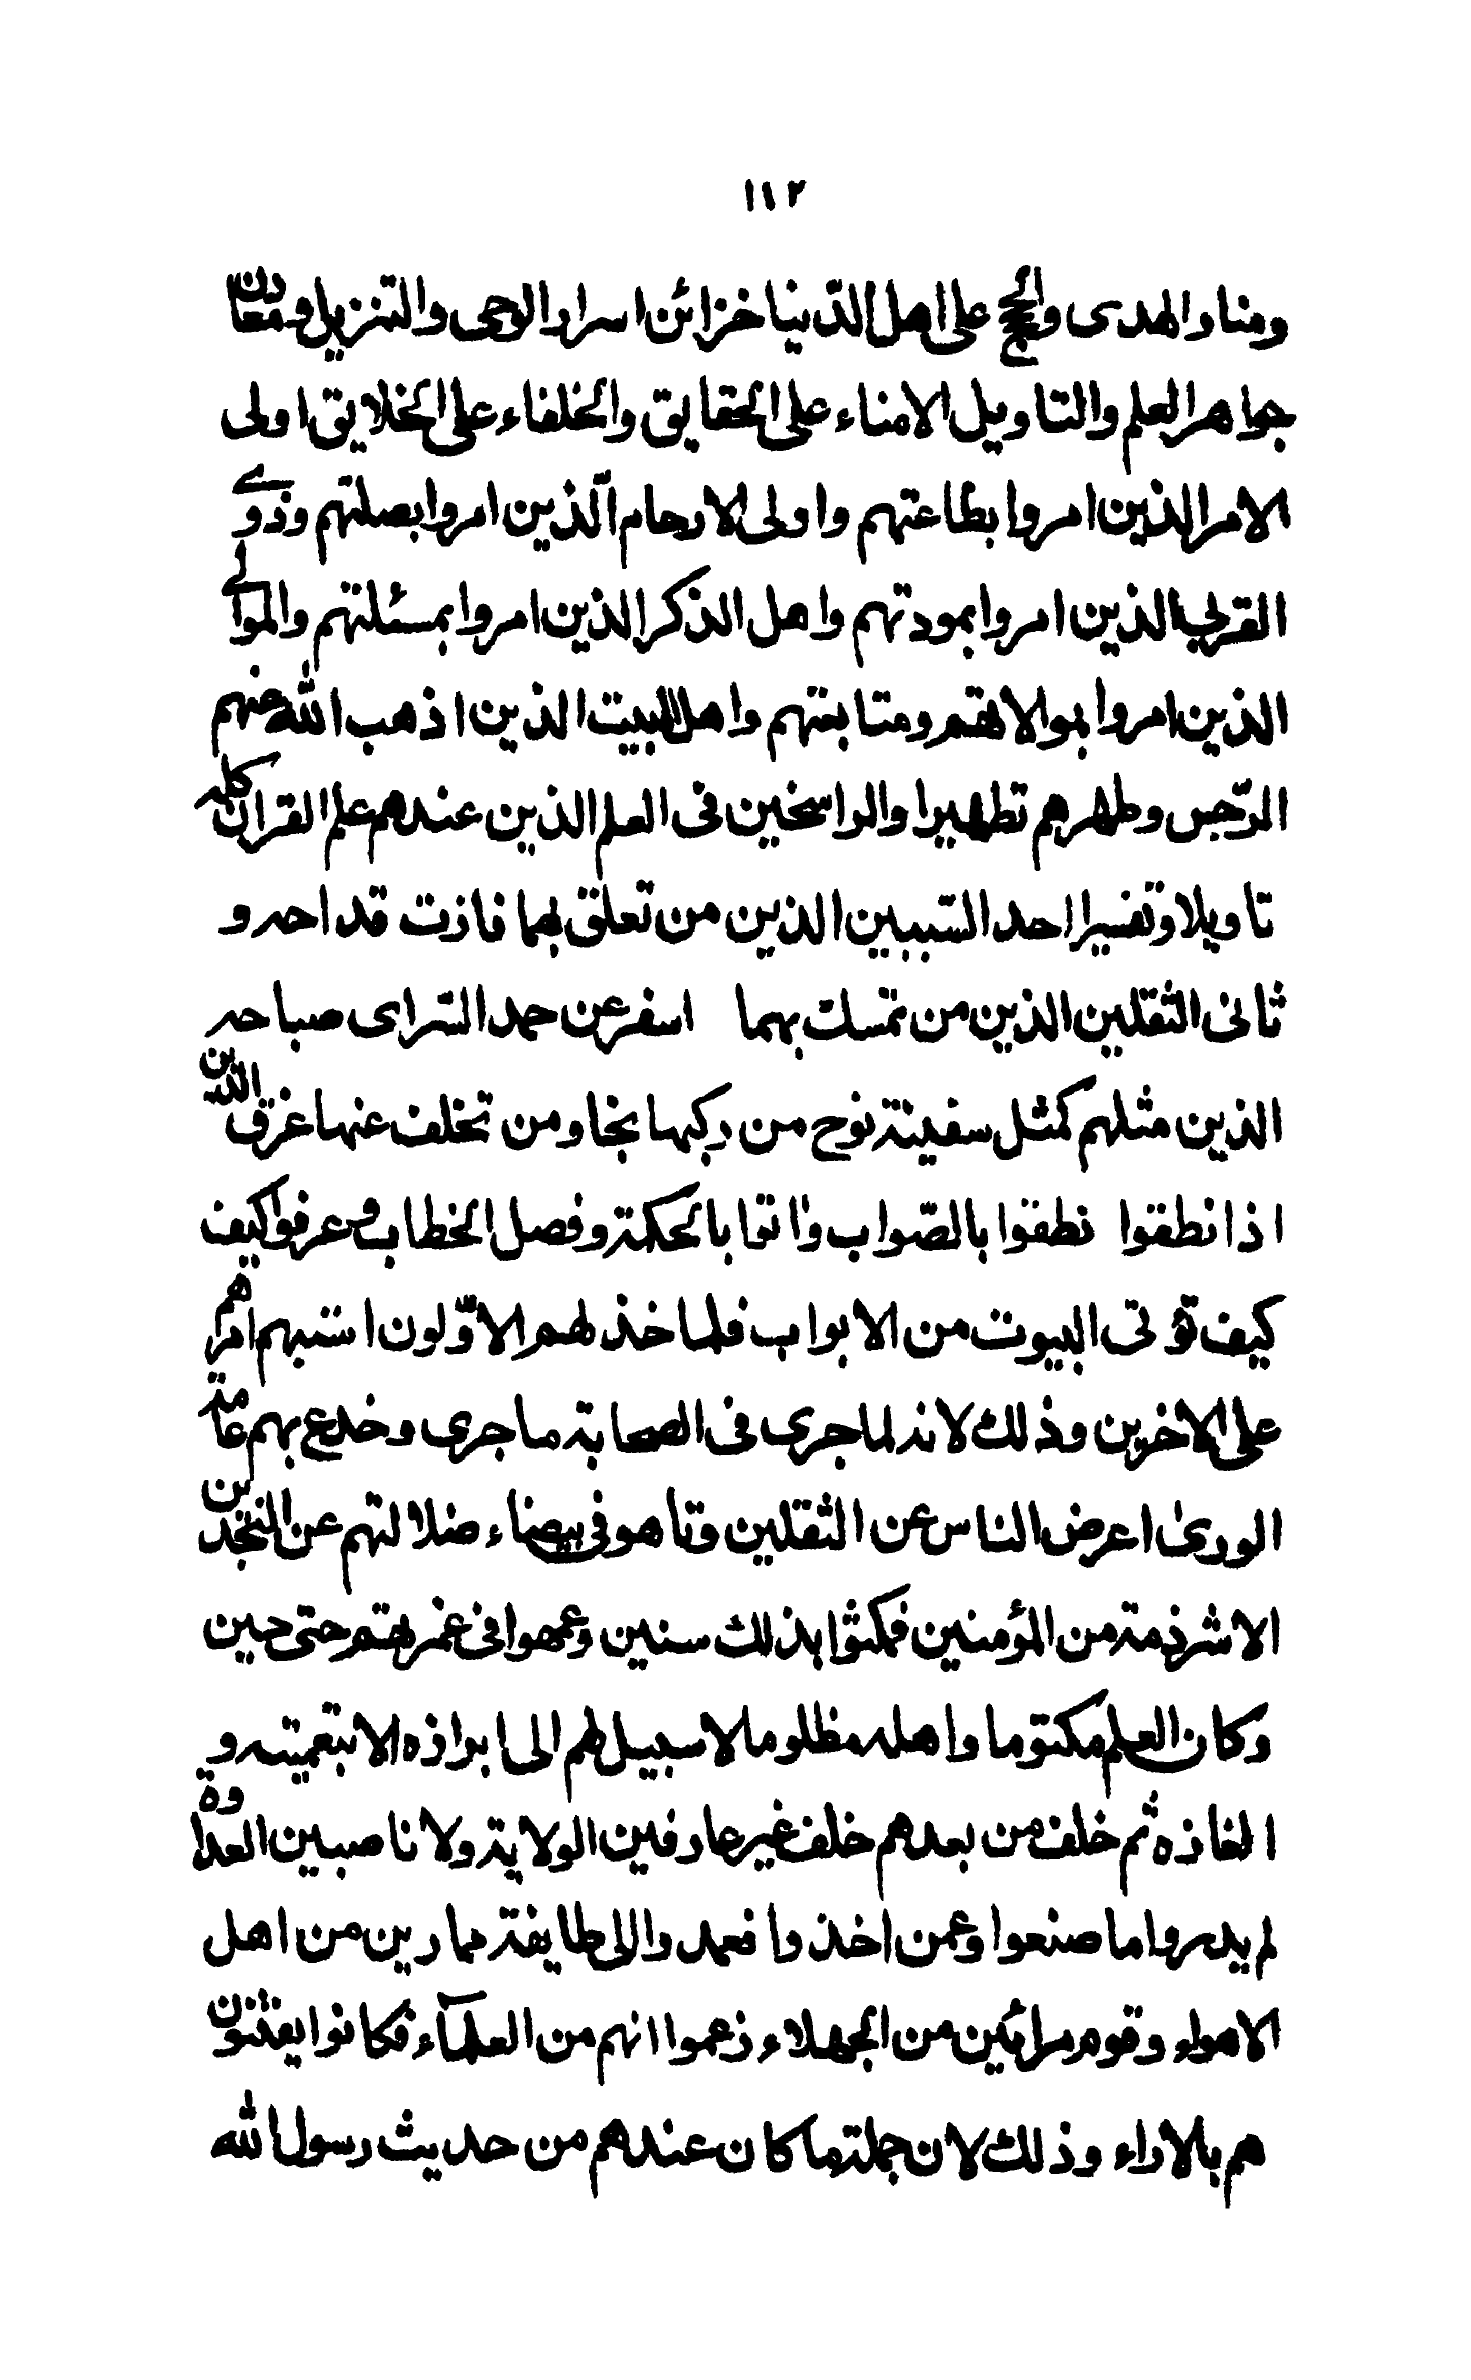 ١١٢
ومنار الهدى والحجج على اهل الدّنيا خزائن اسرار الوحى والتنزيل ومعادن
جواهر العلم والتاويل الامناء على الحقايق والخلفاء على الخلايق اولى
الامر الذين امروا بطاعتهم واولى الارحام الّذين امروا بصلتهم وذوي
القربى الذين امروا بمودتهم واهل الذكر الذين امروا بمسئلتهم والموالي
الذين امروا بموالاتهم ومتابعتهم واهل البيت الذين اذهب الله عنهم
الرّجس وطهرهم تطهيرا والراسخين فى العلم الذين عندهم علم القران كله
تاويلا وتفسيرا احد السّببين الذين من تعلق بهما فازت قداحه و
ثانى الثقلين الذين من تمسك بهما اسفر عن حمد السّراى صباحه
الذين مثلهم كمثل سفينة نوح من ركبها نجا ومن تخلف عنها غرق الذين
اذا نطقوا نطقوا بالصّواب واتوا بالحكمة وفصل الخطاب وعرفوا كيف
كيف تؤتى البيوت من الابواب فلما خذلهم الاوّلون اشتبه امرهم
على الاخرين وذلك لانه لما جرى فى الصحابة ما جرى وخدع بهم عامة
الورىٰ اعرض الناس عن الثقلين وتاهو فى بيضاء ضلالتهم عن النجدين
الا شرذمة من المؤمنين فمكثوا بذلك سنين وعمهوا فى غمرتهم حتى حين
وكان العلم مكتوما واهله مظلوما لا سبيل لهم الى ابرازه الا بتعميته و
الغازه ثم خلف من بعدهم خلف غير عارفين الولاية ولا ناصبين العداوة
لم يدروا ما صنعوا وعمن اخذوا فعمدوا الى طايفة ممارين من اهل
الاهواء وقوم مرائين من الجهلاء زعموا انهم من العلمآء فكانوا يفتون
هم بالاراء وذلك لان جملة ما كان عندهم من حديث رسول الله